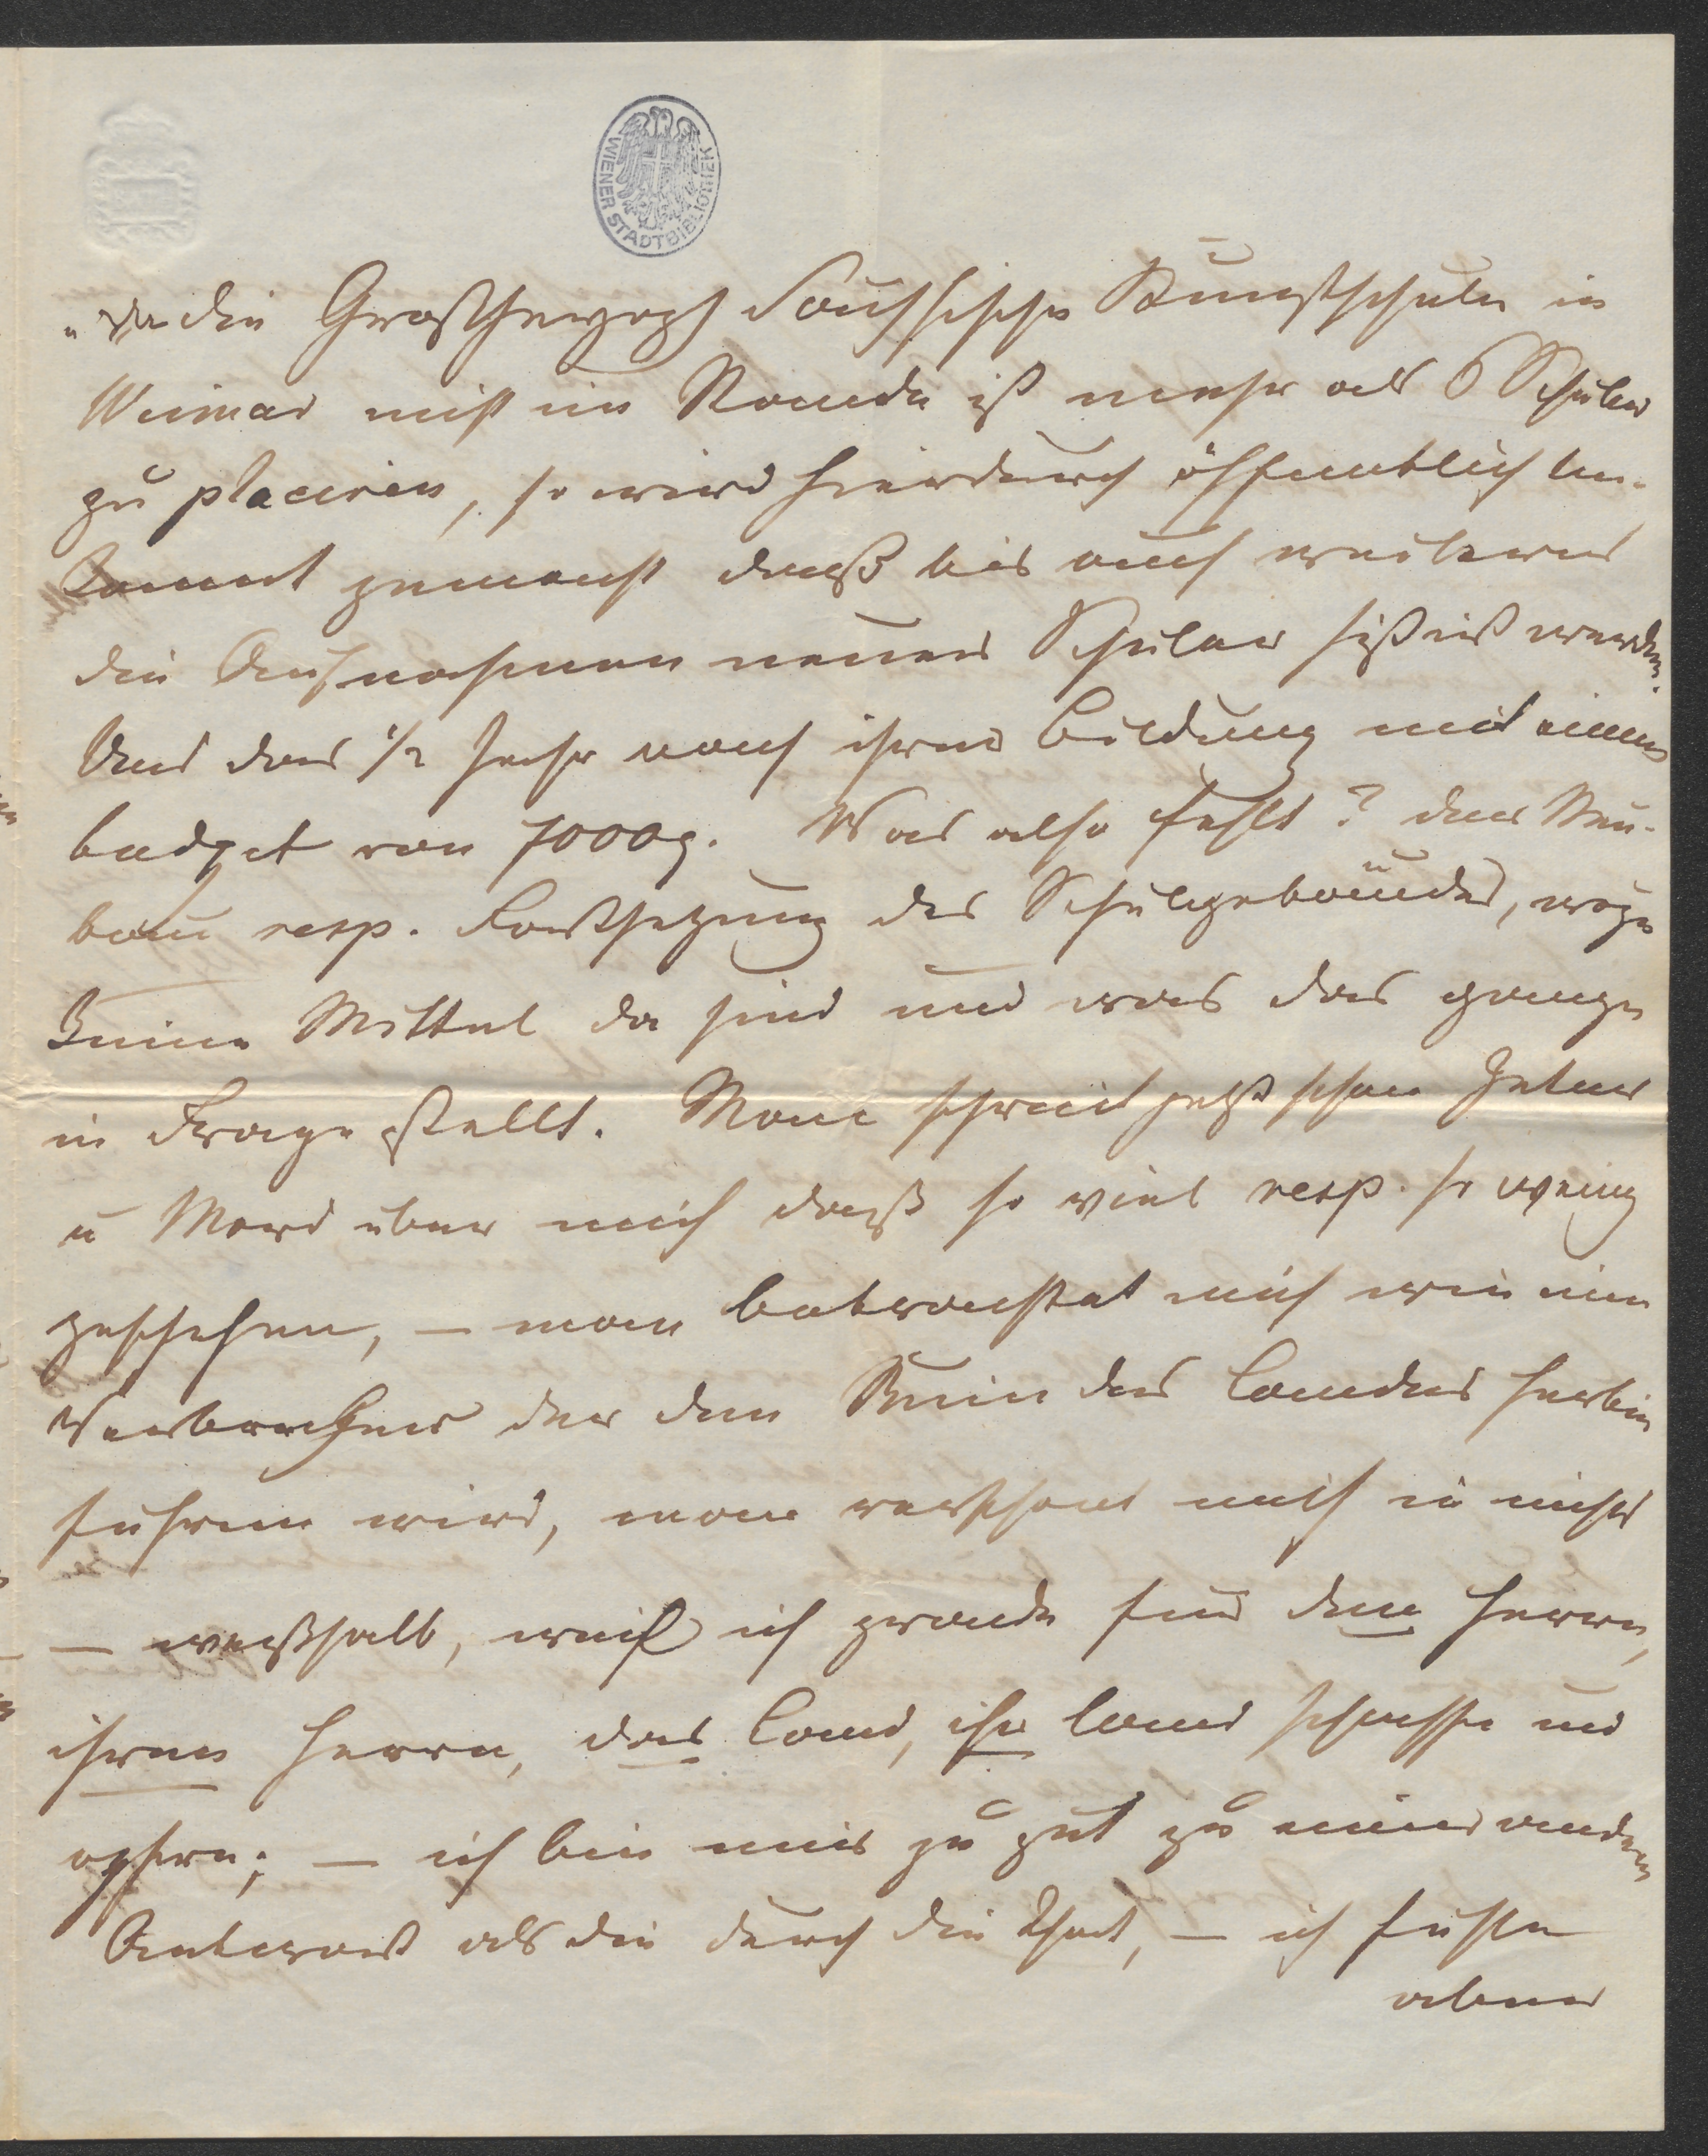 WIENER STADTBIBLIOTHEK
"da die Großherzogl Sächsische Kunstschule in
Weimar nicht im Stande ist mehr als 6 Schüler
zu placiren, so wird hierdurch öffentlich be-
kannt gemacht daß bis auf weiteres
die Aufnahmen neuer Schüler sistirt werden.
Und das ½ Jahr nach ihrer Bildung mit einem
budget von 7000 Was also fehlt? der Neu-
bau resp. Fortsetzung des Schulgebäudes, wozu
keine Mittel da sind und was das ganze
in Frage stellt. Man schreit jetzt schon Zeter
u Mord über mich daß so viel resp. so wenig
geschehen, — man betrachtet mich wie einen
Verbrecher der den Ruin des Landes herbei
führen wird, man verschont mich in nichts
— weßhalb, weil ich gerade für den Herrn,
ihren Herrn, das Land, ihr Land schaffe und
opfere; — ich bin mir zu gut zu einer andern
Antwort als die durch die That, — ich fühle
aber